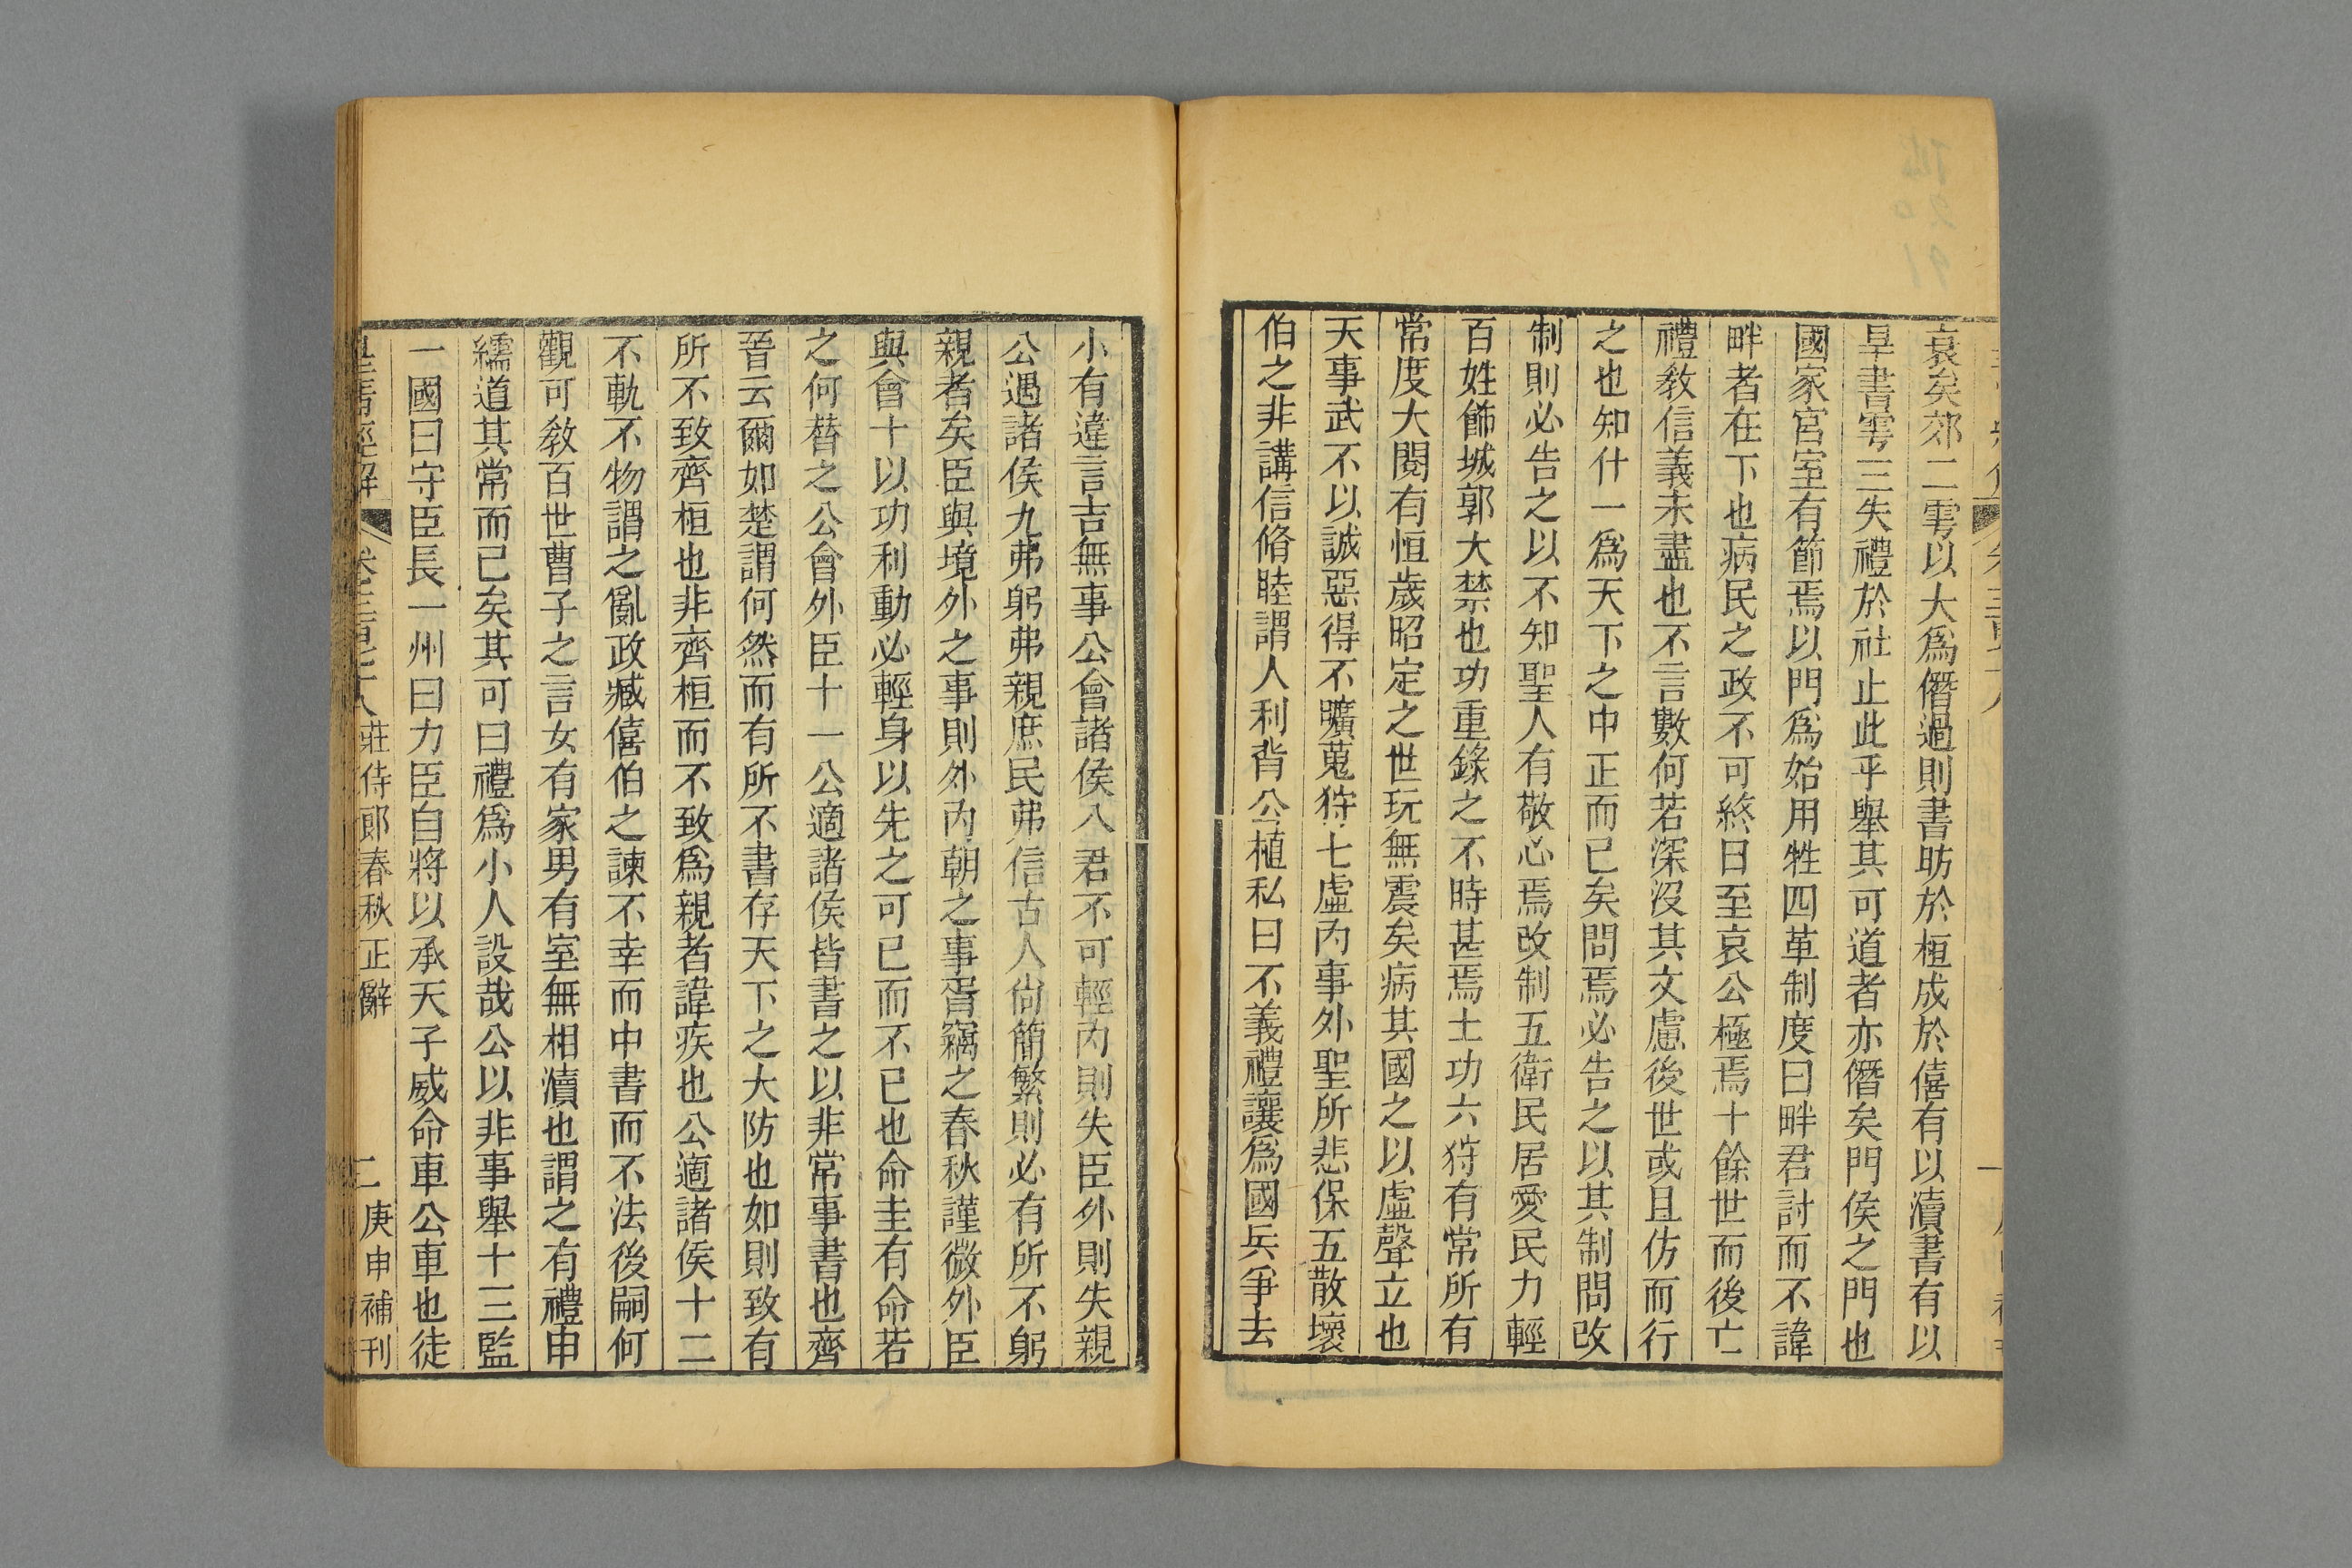 哀矣郊二雩以大爲僭過則書昉於桓成於僖有以瀆書有以
旱書雩三失禮於社止此乎舉其可道者亦僭矣門侯之門也
國家宮室有節焉以門爲始用牲四革制度曰畔君討而不諱
畔者在下也病民之政不可終日至哀公極焉十餘世而後亡
禮敎信義未盡也不言數何若深沒其文慮後世或且仿而行
之也知什一爲天下之中正而已矣問焉必告之以其制問改
制則必告之以不知聖人有敬心焉改制五衛民居愛民力輕
百姓飾城郭大禁也功重錄之不時甚焉土功六狩有常所有
常度大閱有恒歲昭定之世玩無震矣病其國之以虛聲立也
天事武不以誠惡得不曠蒐狩七虛內事外聖所悲保五散壞
伯之非講信脩睦謂人利背公植私曰不義禮讓爲國兵爭去
小有違言吉無事公會諸侯八君不可輕內則失臣外則失親
公遇諸侯九弗躬弗親庶民弗信古人尙簡繁則必有所不躬
親者矣臣與境外之事則外內朝之事胥竊之春秋謹微外臣
與會十以功利動必輕身以先之可已而不已也命圭有命若
之何替之公會外臣十一公適諸侯皆書之以非常事書也齊
晉云爾如楚謂何然而有所不書存天下之大防也如則致有
所不致齊桓也非齊桓而不致爲親者諱疾也公適諸侯十二
不軌不物謂之亂政臧僖伯之諫不幸而中書而不法後嗣何
觀可敎百世曹子之言女有家男有室無相瀆也謂之有禮申
繻道其常而已矣其可曰禮爲小人設哉公以非事舉十三監
一國曰守臣長一州曰力臣自將以承天子威命車公車也徒
皇淸經解 卷三百七十八 莊侍郞春秋正辭 二 庚申補刊